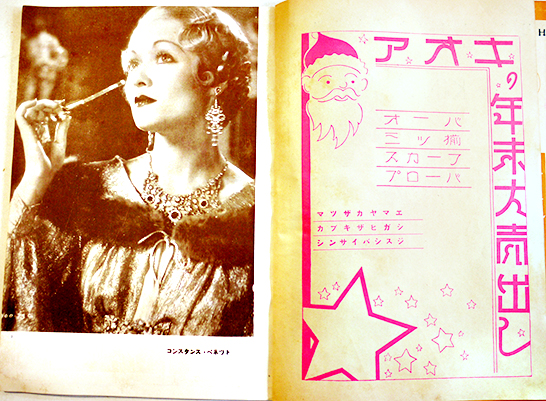 コンスタンス・ベネツト
アオキの年末大売出し
オーバ
三ツ揃
スカーフ
プローバ
マツザカヤマエ
カブキザヒガシ
シンサイバシスジ
H